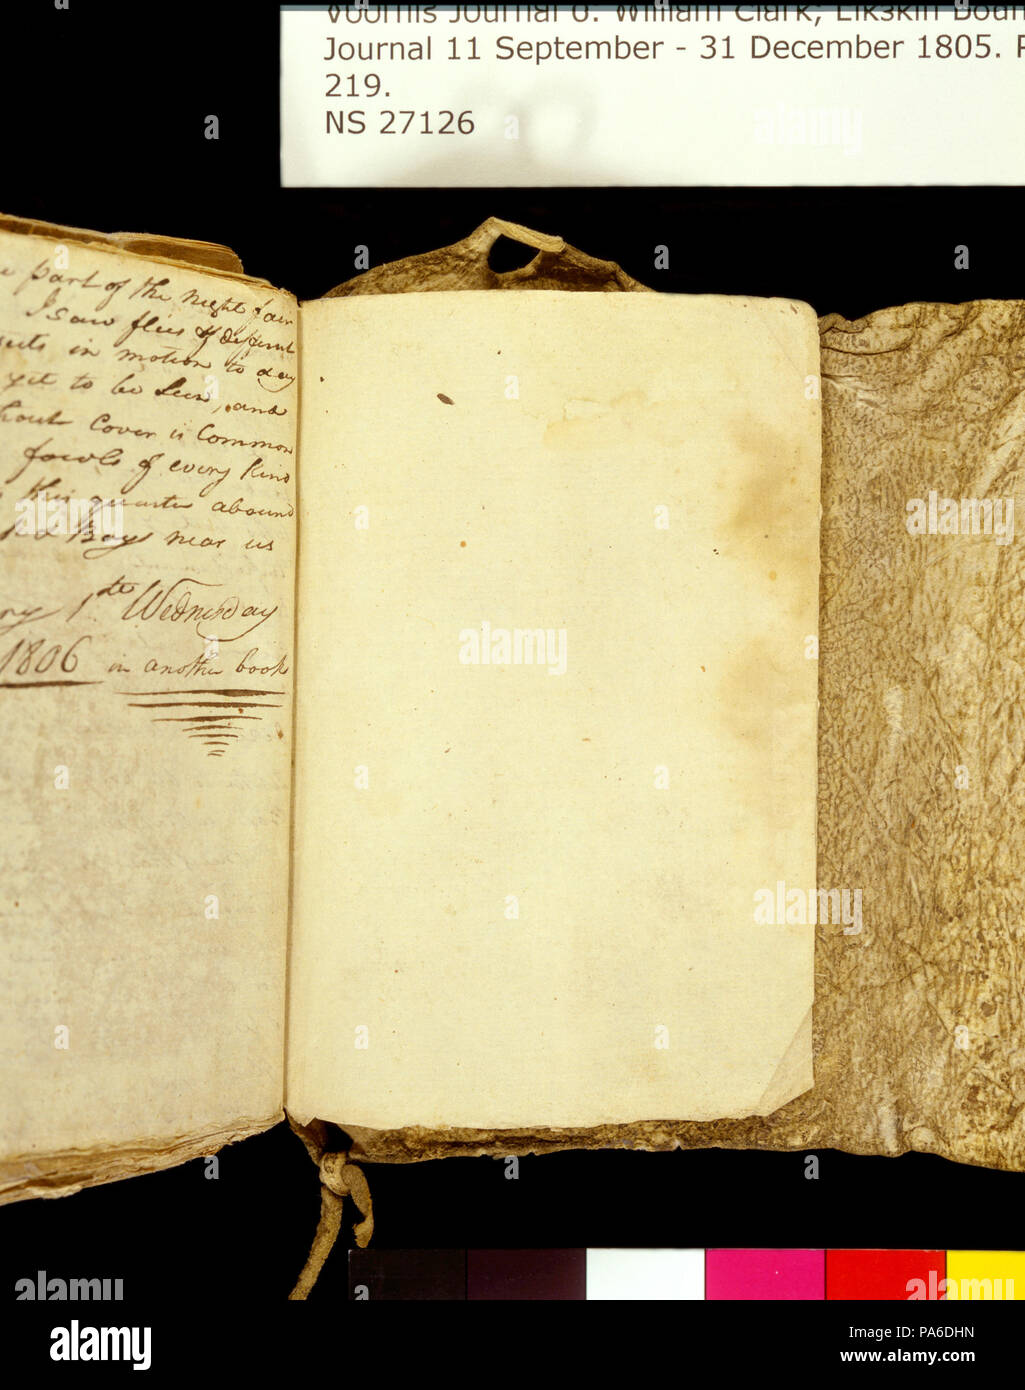 Voorhis Journal 6. William Clark, Elkskin Bou
Journal 11 September - 31 December 1805.
219.
NS 27126
part of the night fair
I saw flies & different
in motion to day
yet to be seen, and
Cover is Common
fowls of every kind
this quarter abound
near us
1st Wednesday
1806 in another book
a alamy
alamy
Image ID: PA6DHN
www.alamy.com